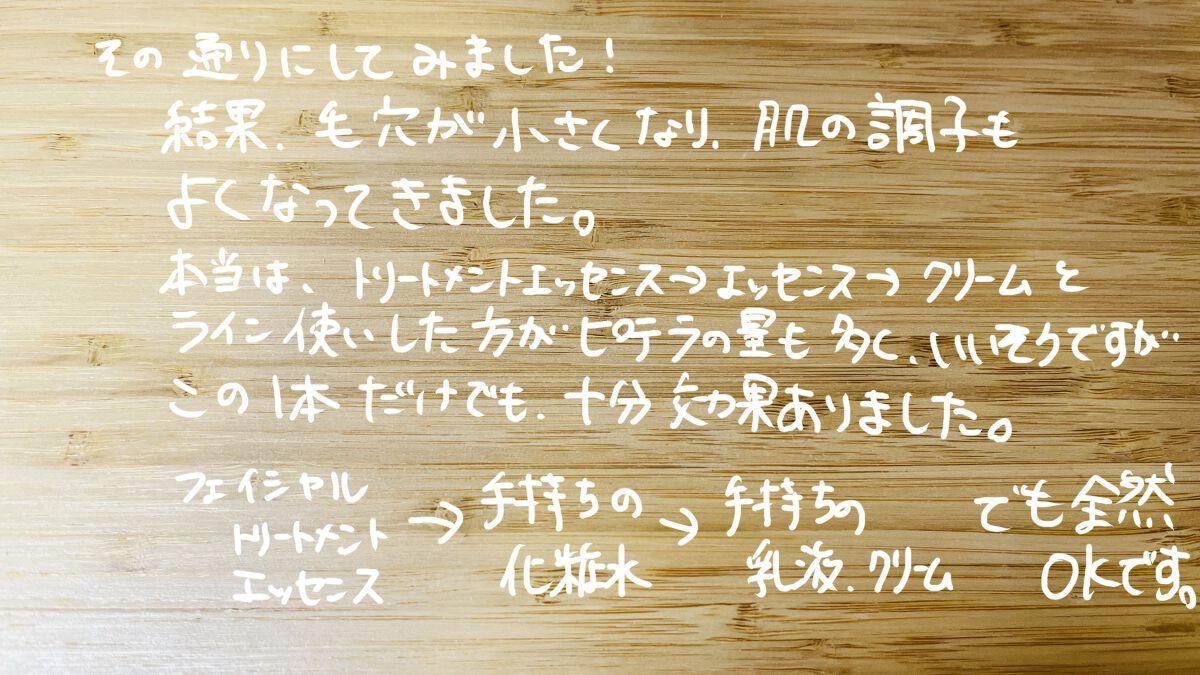 その通りにしてみました！
結果、毛穴が小さくなり、肌の調子も
よくなってきました。
本当は、トリートメントエッセンス→エッセンス→クリームと
ライン使いした方がピテラの量も多く、いいそうですが
この1本だけでも、十分効果ありました。
フェイシャル
トリートメント
エッセンス
→
手持ちの
化粧水
→
手持ちの
乳液、クリーム
でも全然
OKです。